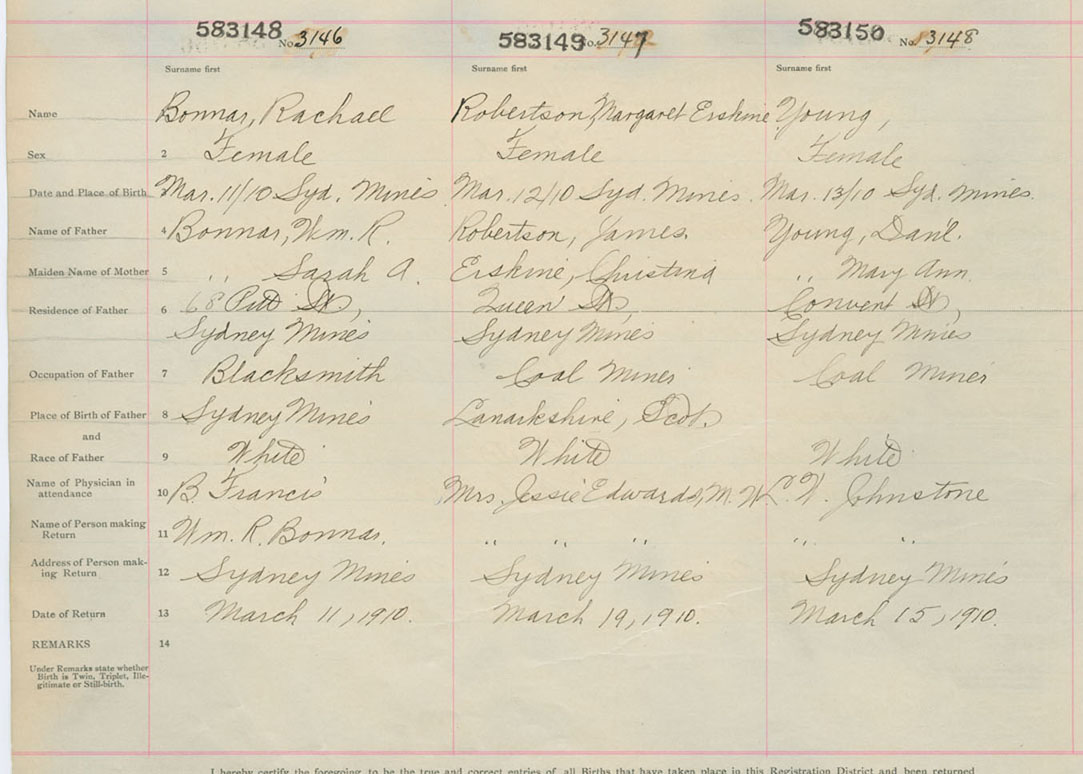 583148 No. 3146
583149 No. 3147
583150 No. 3148
Surname first Surname first Surname first
Name Bonnar, Rachael Robertson, Margaret Erskine Young,
Sex 2 Female Female Female
Date and Place of Birth Mar. 11/10 Syd. Mines Mar. 12/10 Syd. Mines. Mar. 13/10 Syd. Mines.
Name of Father 4 Bonnar, Wm. R. Robertson, James. Young, Danl.
Maiden Name of Mother 5 " Sarah A. Erskine, Christina " Mary Ann
Residence of Father 6 68 Pitt St., Queen St., Convent St.,
Sydney Mines Sydney Mines Sydney Mines
Occupation of Father 7 Blacksmith Coal Miner Coal Miner
Place of Birth of Father 8 Sydney Mines Lanarkshire, Scot.
and
Race of Father 9 White White White
Name of Physician in
attendance 10 B Francis Mrs. Jessie Edwards, M. W. L. W. Johnstone
Name of Person making
Return 11 Wm. R. Bonnar. " " " " "
Address of Person mak-
ing Return 12 Sydney Mines Sydney Mines Sydney Mines
Date of Return 13 March 11, 1910. March 19, 1910. March 15, 1910.
REMARKS 14
Under Remarks state whether
Birth is Twin, Triplet, Ille-
gitimate or Still-birth.
I hereby certify the foregoing to be the true and correct entries of all Births that have taken place in this Registration District and been returned